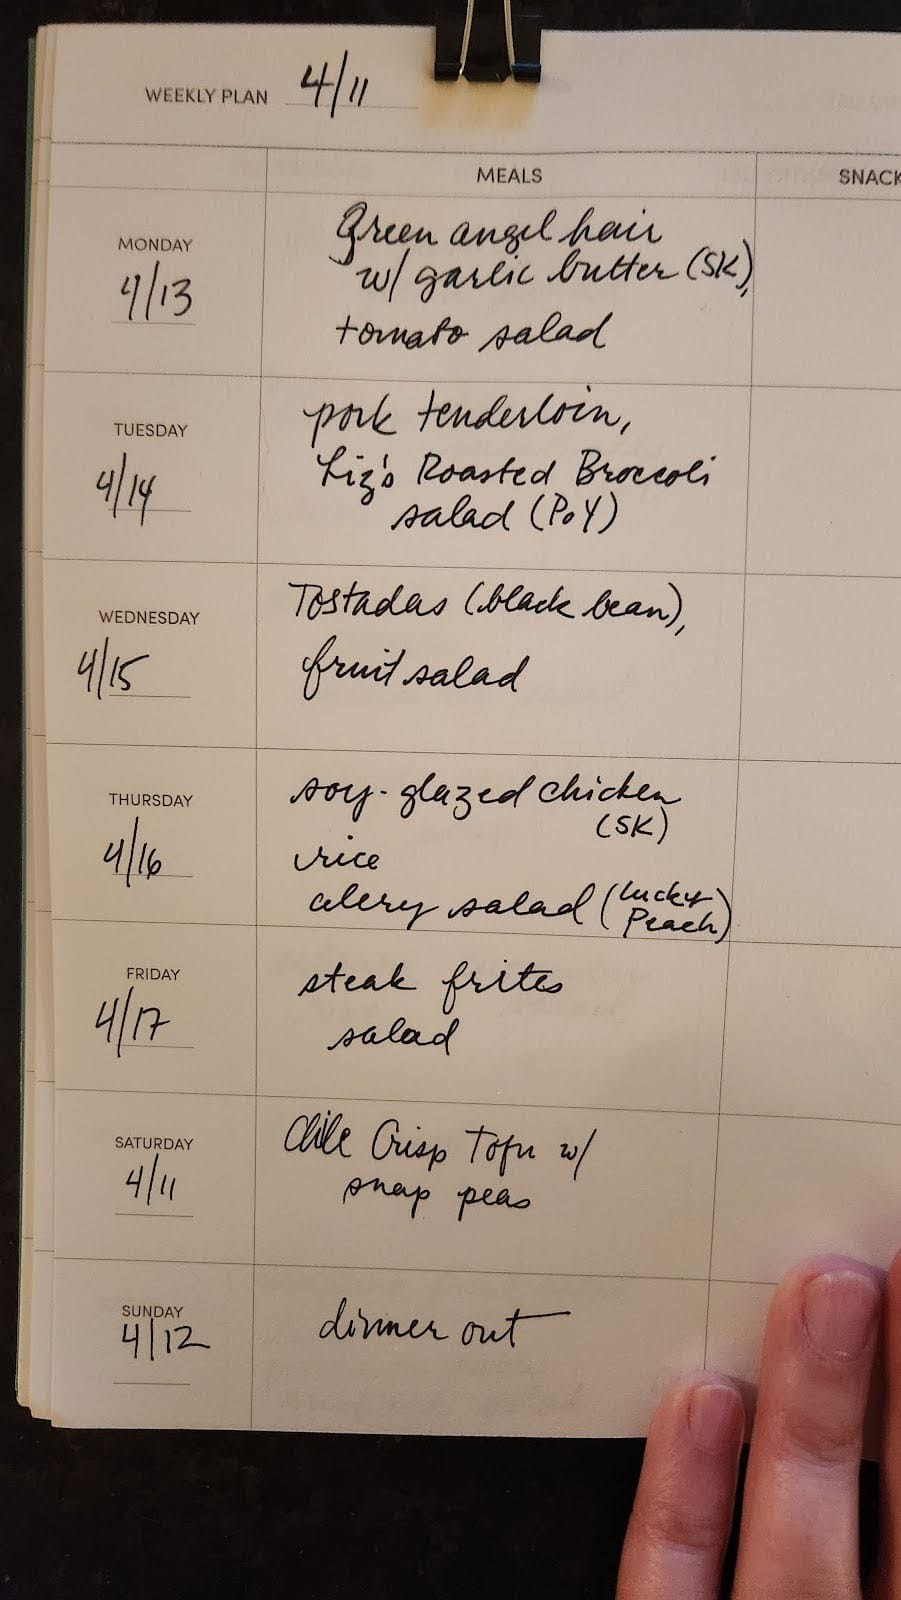 WEEKLY PLAN 4/11
MEALS SNACK
MONDAY
4/13
Green angel hair
w/ garlic butter (SK),
tomato salad
TUESDAY
4/14
pork tenderloin,
Liz's Roasted Broccoli
salad (PoY)
WEDNESDAY
4/15
Tostadas (black bean),
fruit salad
THURSDAY
4/16
soy-glazed chicken
(SK)
rice
celery salad (Lucky
Peach)
FRIDAY
4/17
steak frites
salad
SATURDAY
4/11
Chile Crisp Tofu w/
snap peas
SUNDAY
4/12
dinner out